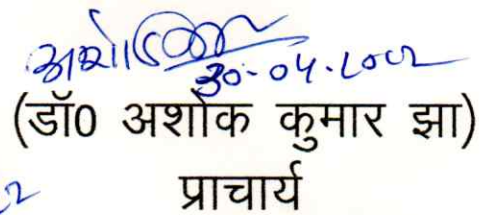 30-04-2022
(डॉ0 अशोक कुमार झा)
प्राचार्य